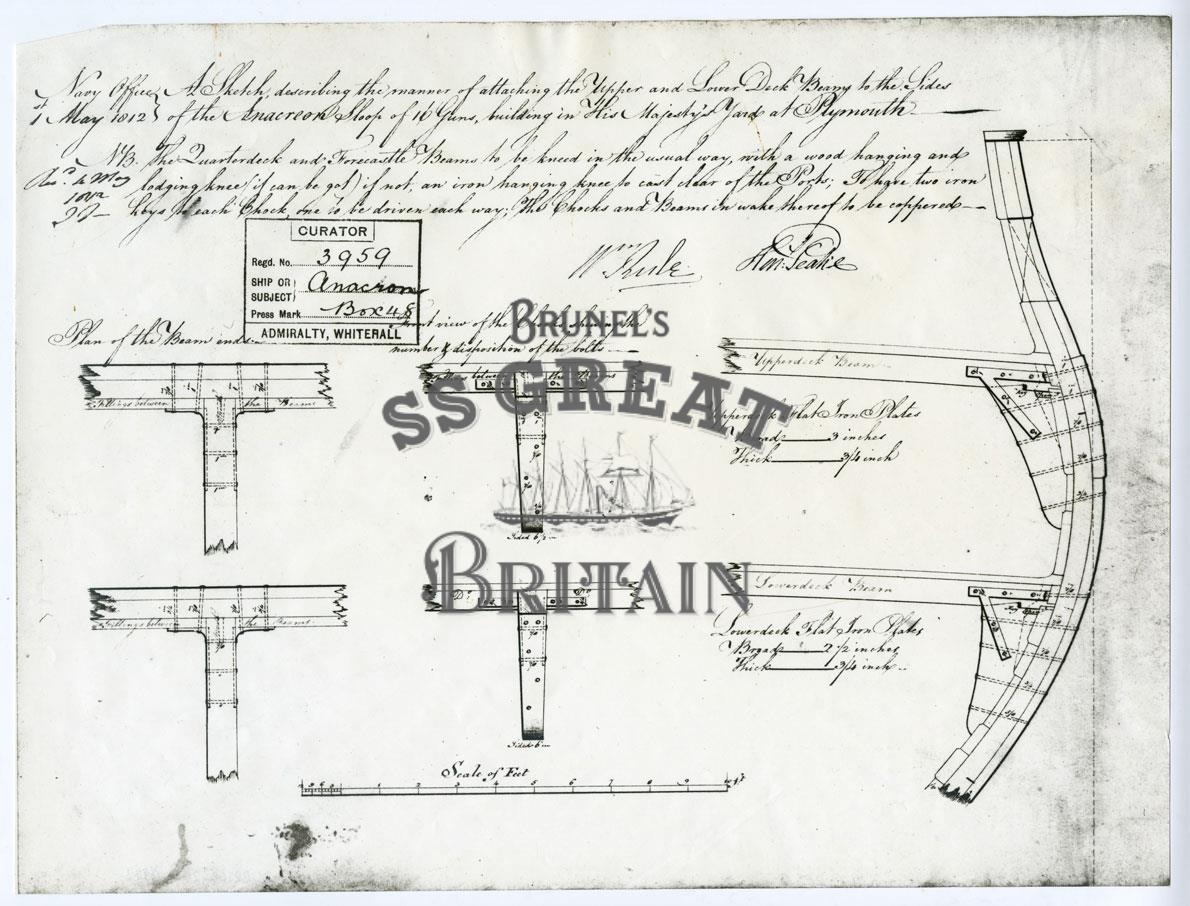 Navy Office } A Sketch, describing the manner of attaching the Upper and Lower Deck Beams to the Sides
1st May 1812 } of the Anacreon Sloop of 16 Guns, building in His Majesty's Yard at Plymouth
NB. The Quarterdeck and Forecastle Beams to be kneed in the usual way, with a wood hanging and
4 May
1812
lodging knee (if it can be got) if not, an iron hanging knee to cast clear of the Ports; To have two iron
keys to each Chock, one to be driven each way; The Chocks and Beams in wake thereof to be coppered
Wm Rule
Hen. Peake
CURATOR
Regd. No. 3959
SHIP OR SUBJECT } Anacreon
Press Mark Box 48
ADMIRALTY, WHITEHALL
Plan of the Beam ends
Front view of the Chocks the
number & disposition of the bolts
BRUNEL'S
SS GREAT
BRITAIN
Fillings between the Beams
Upperdeck Beam
Upperdeck Flat Iron Plates
Broad 3 inches
Thick 3/4 inch
Sided 6 1/2
Fillings between the Beams
Do Do
Lowerdeck Beam
Lowerdeck Flat Iron Plates
Broad 2 1/2 inches
Thick 3/4 inch
Sided 6 in
Scale of Feet
1 2 3 4 5 6 7 8 9